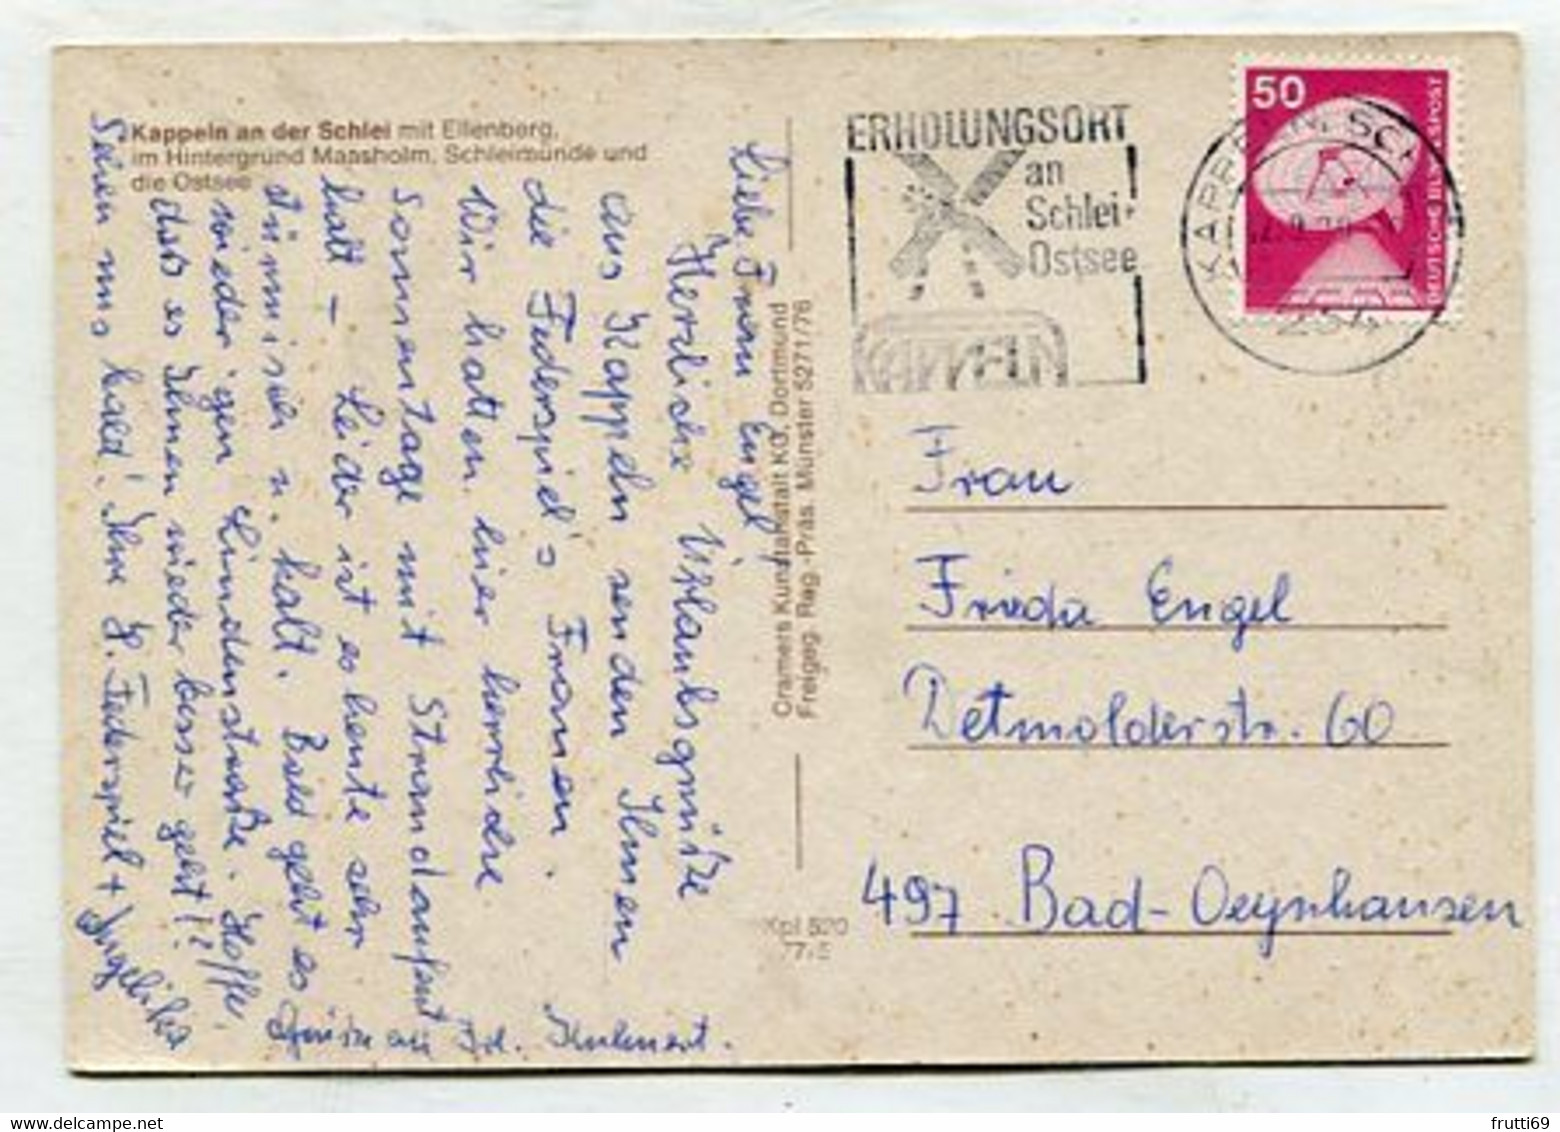 Kappeln an der Schlei mit Ellenberg,
im Hintergrund Maasholm, Schleimünde und
die Ostsee
Liebe Frau Engel,
Herzliche Urlaubsgrüße
aus Kappeln senden Ihnen
die Federspiel's Frauen.
Wir hatten hier herrliche
Sonnentage mit Strandaufent
halt – Leider ist es heute sehr
stürmisch u. kalt. Bald geht es
wieder gen Lindenstraße. Hoffe,
daß es Ihnen wieder besser geht!?
Sehen uns bald! Ihre H. Federspiel + Angelika
Grüße an Frl. Kuhnert.
Cramers Kunstanstalt KG, Dortmund
Freigeg. Reg.-Präs. Münster 5271/76
Kpl 520
ERHOLUNGSORT
an
Schlei+
Ostsee
KAPPELN
50
DEUTSCHE BUNDESPOST
KAPPELN, SCHLEI
234
Frau
Frieda Engel
Detmolderstr. 60
497 Bad-Oeynhausen
frutti69